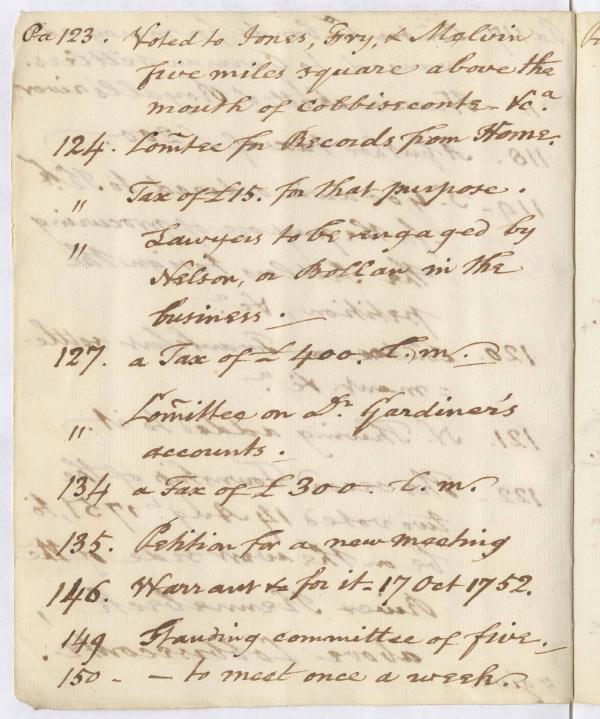 Pa 123. Voted to Jones, Fry, & Melvin
five miles square above the
mouth of Cobbiseconte &c.a
124. Com̄tee for Records from Home.
" Tax of £15. for that purpose.
" Lawyers to be engaged by
Nelson, or Bollan in the
business.
127. a Tax of £400. l.m.
" Com̄ittee on Dr. Gardiner's
accounts.
134 a Tax of £300. l.m.
135. Petition for a new meeting
146. Warrant &c for it - 17 Oct 1752.
149 Standing committee of five.
150 - - to meet once a week.